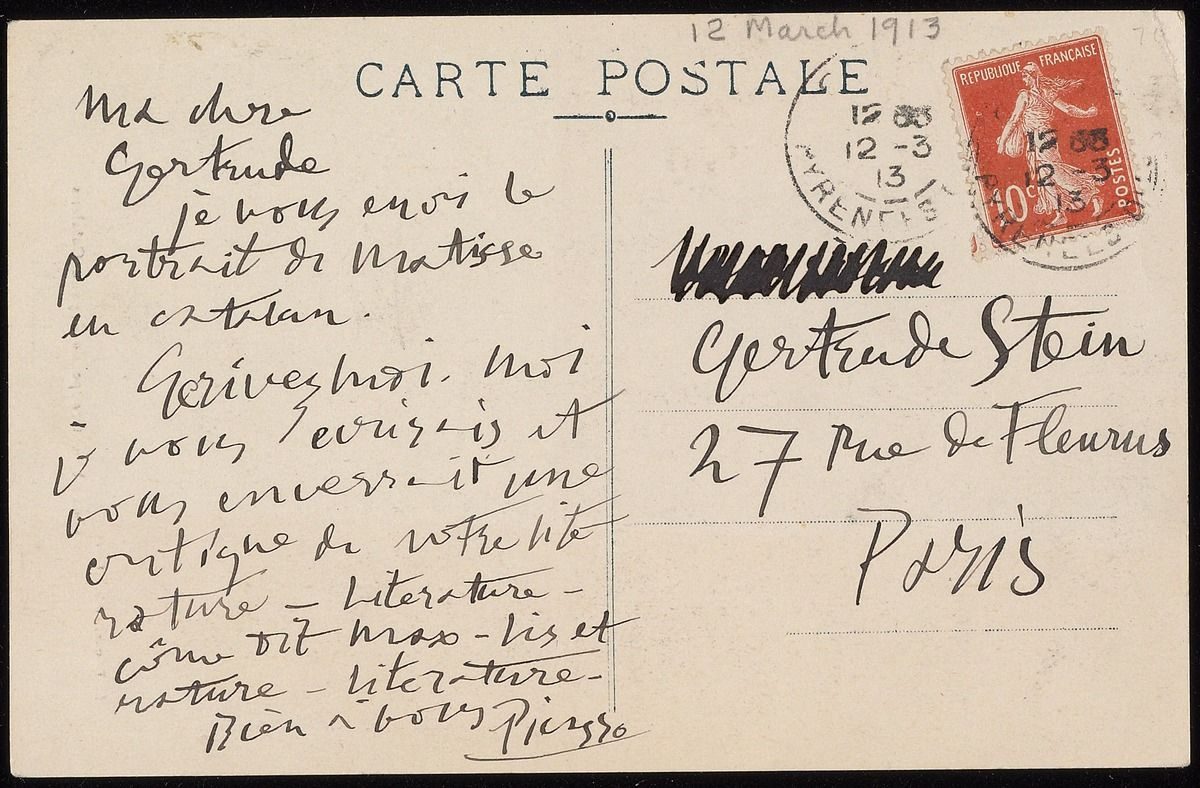 12 March 1913
CARTE POSTALE
REPUBLIQUE FRANÇAISE
POSTES
10c
12
12 -3
13
PYRENEES
12
12 -3
13
ma chere
Gertrude
je vous envois le
portrait de Matisse
en catalan.
Ecrivez moi. moi
je vous ecrirais et
vous enverrait une
critique de votre lite
rature — literature —
côme dit Max — lis et
rature — literature —
Bien a vous Picasso
Gertrude Stein
27 rue de Fleurus
Paris